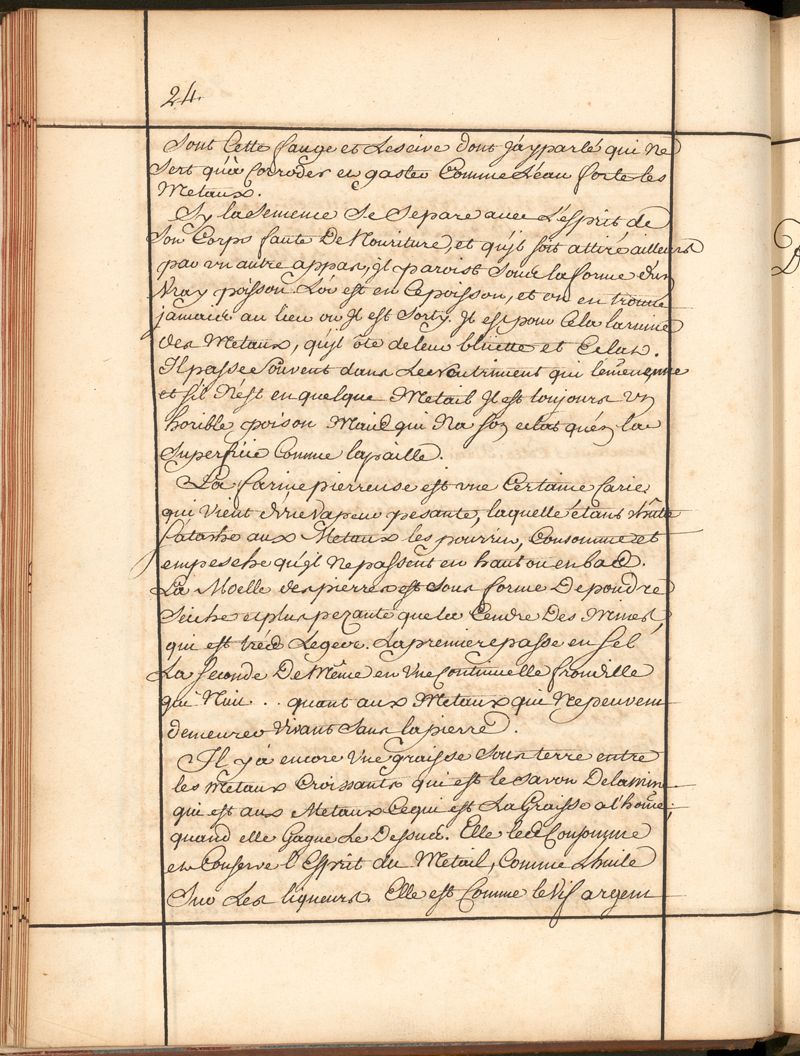 24.
Sont Cette fange et Lescive dont J'ay parlé qui Ne
Sert qu'à Corroder et gaster Comme L'eau forte les
Metaux.
Sy la Semence Se Separe avec L'esprit de
Son Corps faute De Nouriture, et qu'jl soit attiré ailleurs
par un autre appas, jl paroist Sous la forme d'un
Vray poisson. L'or est en Ce poisson, et on en trouve
jamais au lieu ou Jl est Sorty. Jl est pour Cela la ruine
des Metaux, qu'jl ôte de leur bluette et Eclat.
Il passe Souvent dans Le nutriment qui
et s'il N'est en quelque Metail Jl est toujours un
horible poison Mais qui N'a son eclat qu'en la
Superficie Comme la paille.
La farine pierreuse est une Certaine Carie
qui Vient d'une Vapeur pesante, laquelle étant
S'atache aux Metaux les pourrir, Consomme et
empesche qu'jl Ne passent en haut ou en bas.
La Moelle des pierres est Sous forme De poudre
Seiche et plus pezante que la Cendre Des Mines,
qui est tres Legere. La premiere passe en Sel
La Seconde De Même en Une Continuelle
qui Nuit . . quant aux Metaux qui Ne peuvent
demeurer Vivant Sans la pierre.
Il y a encore Une graisse Sous terre entre
les Metaux Croissants qui est le Savon De la Mine
qui est aux Metaux Ce qui est La Graisse a l'home;
quand elle Gagne Le Dessus. Elle les Consomme
en Conserve l'Esprit du Metail, Comme L'huile
Sur Les liqueurs. Elle est Comme le Vif argent